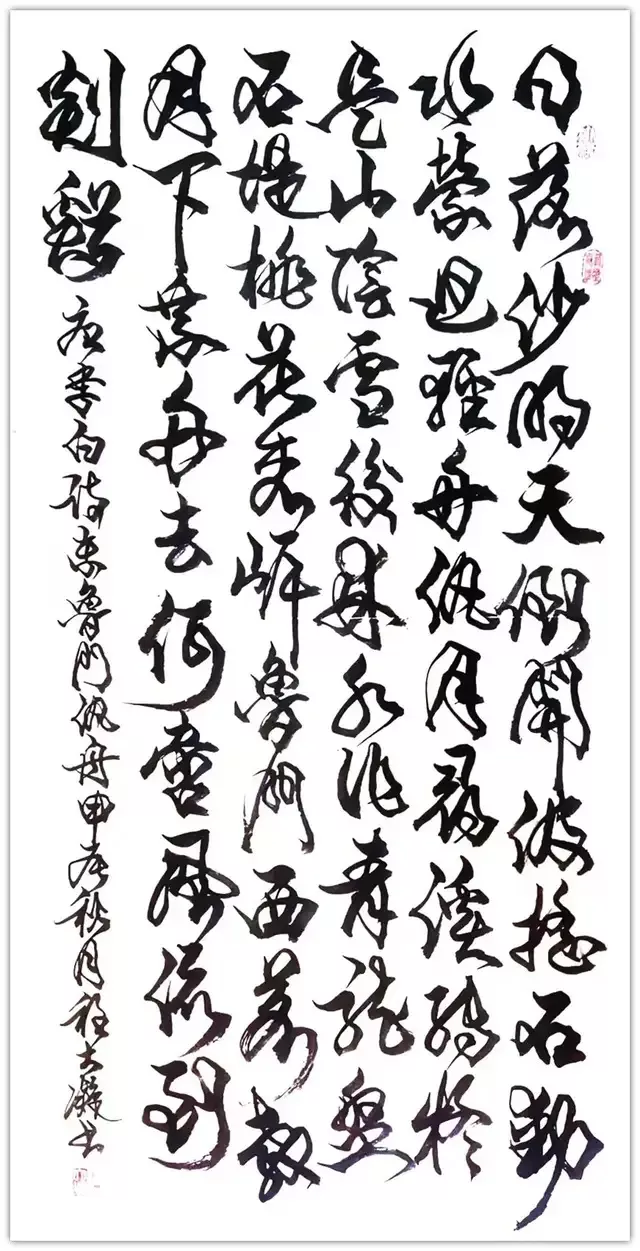 日落沙明天倒開波搖石動
水縈迴輕舟汎月尋溪轉疑
是山陰雪後來水作青龍盤
石堤桃花夾岸魯門西若教
月下乘舟去何啻風流到
剡溪
唐李白詩東魯門汎舟甲午秋月程大凝書